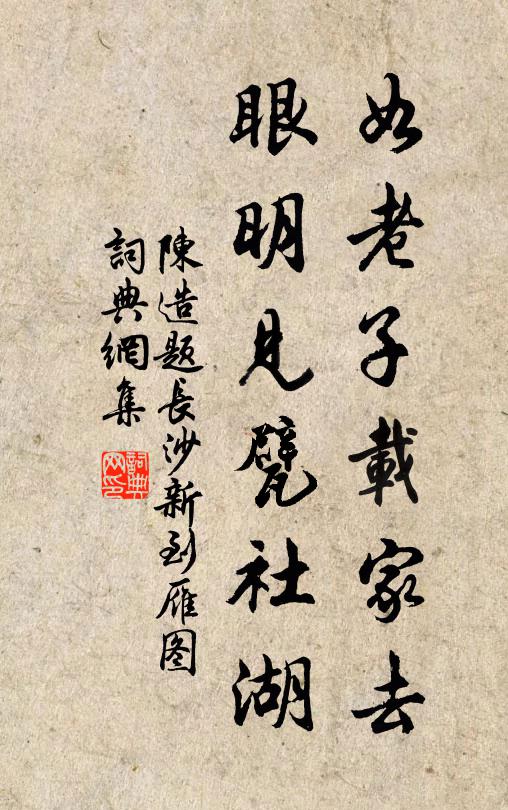 如老子載家去
眼明見甓社湖
陳造題長沙新到雁图
詞典網集
詞典
网印